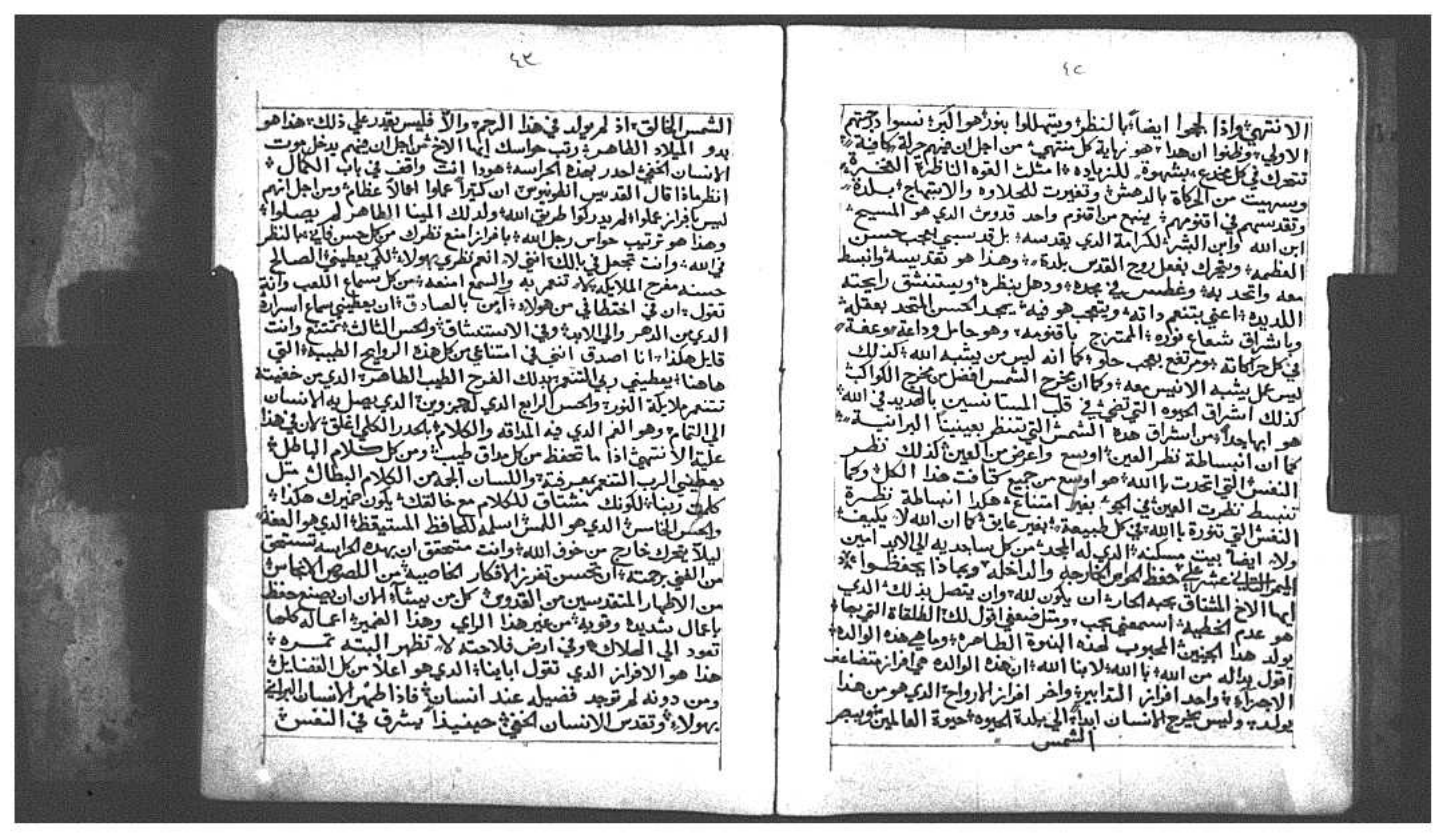 ٤٢
الانتهي واذا لمحوا ايضاً بالنظر ويتهللوا بنور هو اكبر نسوا درجتهم
الاولي وظنوا ان هذا هو نهاية كل منتهي من اجل ان فيهم حركة كافية
تتحرك في كل مخدع بشهوة للزياده امثلت القوه الناظرة الفخرة
وسهيت من الحركاة بالدهش وتغيرت للحلاوه والابتهاج بلدة
وتقدسهم في اقنومهم ينبع من اقنوم واحد قدوس الدي هو المسيح
ابن الله وابن البشر الكرامة الدي يقدسه بل قدسبي لعجب حسن
العظمه ويتحرك بفعل روح القدس بلدة وهذا هو تقديسه وانبسط
معه واتحد به وغطس في مجده ودهل بنظره ويستنشق رايحته
اللديده اعني يتنعم داته ويتعجب هو فيه يمجد الحسن المتحد بعقله
وباشراق شعاع نوره الممتزج باقنومه وهو حامل وداعة وعفة
في كل حركاته ومرتفع بعجب حلو كما انه ليس من يشبه الله كدلك
ليس عمل يشبه الانيس معه وكما ان يخرج الشمس افضل من يخرج الكواكب
كذلك اشراق الحيوه التي تضي في قلب المستانسين بالهديد في الله
هو ابها جداً من اشراق هده الشمس التي تنظر بعينينا البرانية
كما ان انبساطة نظر العين اوسع واعرض من العين كذلك نظر
النفس التي اتحدت باالله هو اوسع من جميع كتافت هدا الكل وكما
تنبسط نظرت العين في الجو بغير امتناع هكدا انبساطة نظرة
النفس التي تنورة باالله في كل طبيعه بغير عايق كما ان الله لا يكيف
ولا ايضاً بيت مسكنه الدي له المجد من كل ساجديه الي الابد امين
الميمر التاني عشر علي حفظ الحواس الخارجه والداخله وبمادا يحفظوا
ايها الاخ المشتاق بمحبه الحارة ان يكون لله وان يتصل بدلك الدي
هو عدم الخطيه اسمعني بحب ومتل ضعفي اقول لك الطلقاة التي بها
يولد هدا الجنين المحبوب لهده البنوة الطاهره وما هي هده الوالده
اقول بداله من الله باالله لابنا الله ان هده الوالده هي افراز متضاعف
الاجزاء واحد افراز التدابير واخر افراز الارواح الدي هو من هدا
يولد وليس يخرج الانسان ابداً الي بلدة الحيوه حيوة العالمين ويبصر
الشمس
٤٣
الشمس الخالق اذ لم يولد في هدا الرحم والا فليس يقدر علي ذلك هدا هو
بدو الميلاد الطاهر رتب حواسك ايها الاخ من اجل ان فيهم يدخل موت
الانسان الخفي احدر بهده الحراسه هودا انت واقف في باب الكمال
انظر ماذا قال القديس انطونيوس ان كتيراً عملوا اعمالاً عظام ومن اجل انهم
ليس بافراز عملوا لم يدركوا طريق الله ولدلك المينا الطاهر لم يصلوا
وهدا هو ترتيب حواس رجل الله بافراز امنع نظرك من كل حسن فاني بالنظر
في الله وانت تجعل في بالك انني لا انعم نظري بهولاء لكي يعطيني الصالح
حسنه مفرح الملايكه لا تنعم به والسمع امنعه من كل سماع اللعب وانة
تقول ان في اختطافي من هولاء اومن بالصادق ان يعطيني سماع اسراره
الدي من الدهر والي الابد وفي الاستنشاق والحس التالت تمتنع وانت
قايل هكدا انا اصدق انني في امتناعي من كل هده الروايح الطيبه التي
هاهنا يعطيني ربي التنعم بدلك الفرح الطيب الطاهر الدي من خفيته
تتنعم ملايكة النور والحس الرابع الدي للمميزين الدي يصل به الانسان
الي التمام وهو الفم الدي فيه المداقه والكلام بالحدر الكلي اغلق لان في هدا
علية الانتهي اذا ما تحفظ من كل مداق طيب ومن كل كلام الباطل
يعطيني الرب التنعم بمعرفته واللسان الجمه من الكلام البطال متل
كلمة ربنا لكونك مشتاق للكلام مع خالقك يكون ضميرك هكدا
والحس الخامس الدي هو اللمس اسلمه للحافظ المستيقظ الدي هو العفة
ليلاً يتحرك خارج من خوف الله وانت متحقق ان بهده الحراسه تستحق
من الغني برحمته ان تحسن تفرز الافكار الخاصيه من اللصوص الانجاس
من الاطهار المتقدسين من القدوس كل من يشاء الان ان يصنع حفظ
باعمال شديده وقويه من غير هدا الراي وهدا الضمير اعماله كلها
تعود الي الهلاك وفي ارض فلاحته لا تظهر البته تمره
هدا هو الافراز الدي تقول اباينا الدي هو اعلا من كل الفضايل
ومن دونه لم توجد فضيله عند انسان فاذا طهر الانسان البراني
بهولاء وتقدس الانسان الخفي حينيداً يشرق في النفس